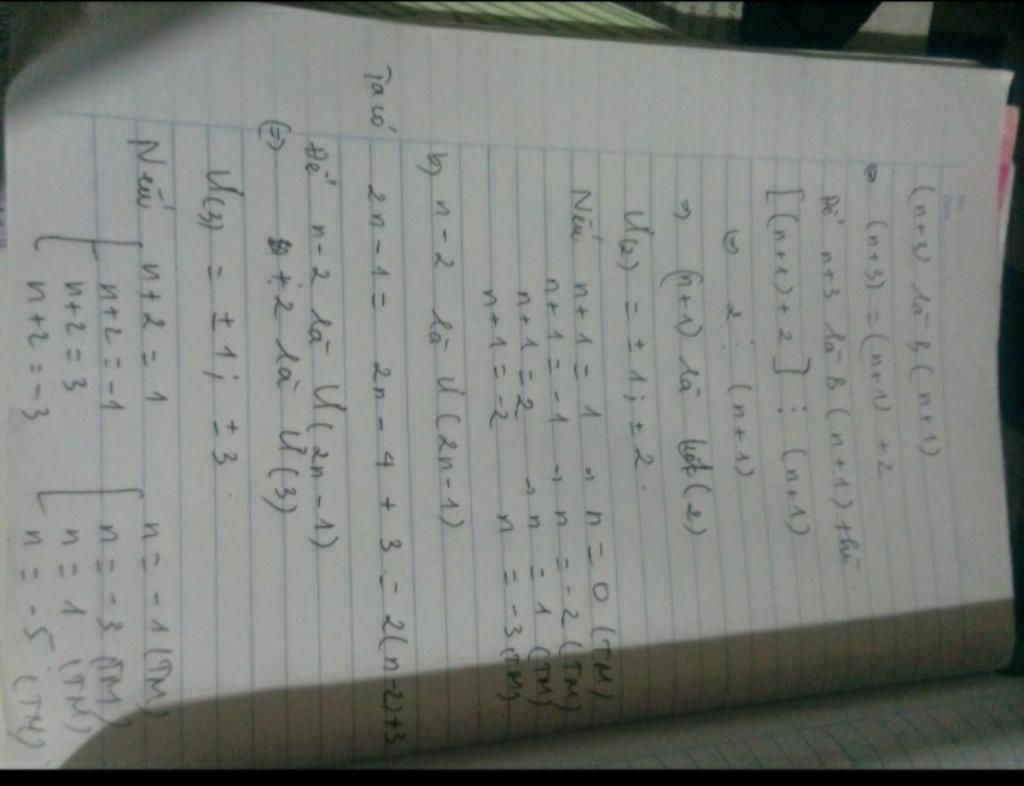 (n+3) là B(n+1)
⇔ (n+3) = (n+1) + 2
Để n+3 là B(n+1) thì
[(n+1)+2] ⋮ (n+1)
⇔ 2 ⋮ (n+1)
⇒ (n+1) là (2)
Ư(2) = ±1; ±2.
Nếu n+1 = 1 → n = 0 (TM)
n+1 = -1 → n = -2 (TM)
n+1 = 2 → n = 1 (TM)
n+1 = -2 n = -3 (TM)
b) n-2 là Ư(2n-1)
Ta có 2n-1 = 2n-4+3 = 2(n-2)+3
Để n-2 là Ư(2n-1)
(=) n+2 là Ư(3)
Ư(3) = ±1; ±3.
Nếu n+2 = 1 n = -1 (TM)
n+2 = -1 n = -3 (TM)
n+2 = 3 n = 1 (TM)
n+2 = -3 n = -5 (TM)